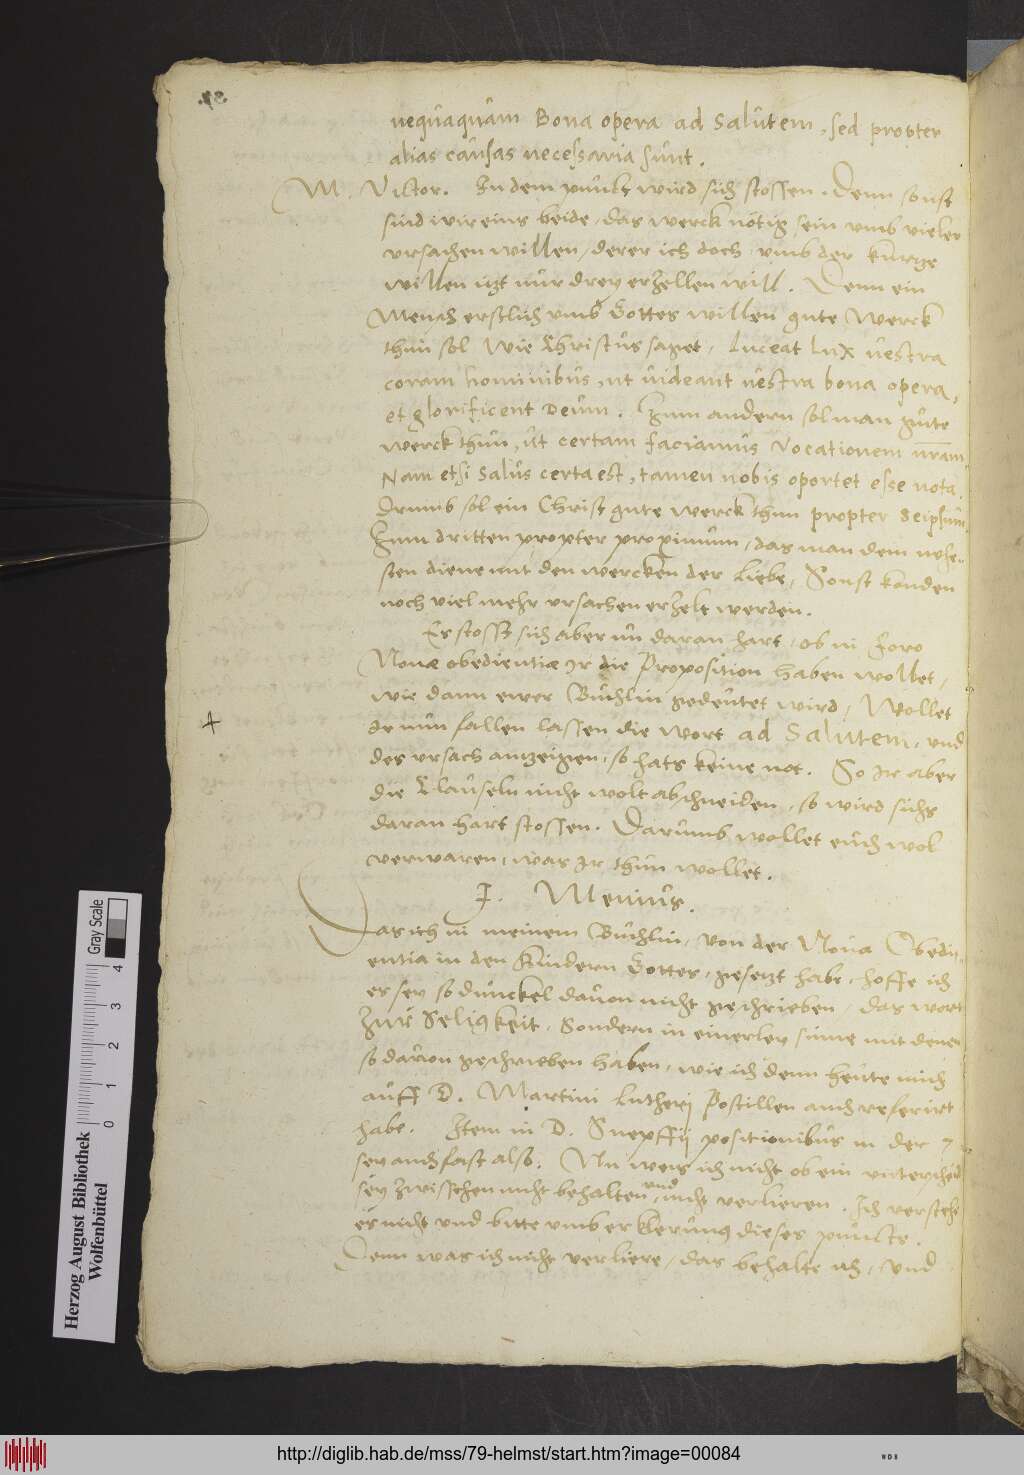 nequaquam Bona opera ad Salutem, sed propter
alias causas necessaria sunt.
M. Victor. In dem punct wird sich stossen. Denn sonst
sind wir eins beide, das werck nötig sein umb vieler
ursachen willen, derer ich doch umb der kurtze
willen itzt nur drey erzellen will. Denn ein
Mensch erstlich umb Gottes willen gute Werck
thun sol wie Christus saget, Luceat Lux vestra
coram hominibus, ut videant vestra bona opera,
et glorificent Deum. Zum andern sol man gute
werck thun, ut certam faciamus vocationem nram
Nam etsi Salus certa est, tamen nobis oportet esse nota.
Drumb sol ein Christ gute werck thun propter seipsum
Zum dritten propter proximum, das man dem nehe-
sten diene mit den wercken der Liebe, Sonst konden
noch viel mehr ursachen erzelt werden.
Es stosst sich aber nu daran hart, ob in foro
Novæ obedientiæ Ir die Proposition haben wollet,
wie dann ewer Buchlin gedeutet wird, Wollet
Ir nun fallen lassen die wort ad Salutem, und
des ursach anzeigen, so hats keine not. So Ir aber
die Clauseln nicht wolt abschneiden, so wird sichs
daran hart stossen. Darumb wollet euch wol
verwaren, was Ir thun wollet.
J. Menius.
Das ich in meinem Buchlin, von der Nova Obedi-
entia in den Kindern Gottes, gesetzt habe, hoffe ich
es sey so dunckel davon nicht geschrieben, das wort
zur Seligkeit, Sondern in einerley sinne mit denen
so davon geschrieben haben, wie ich denn heute mich
auff D. Martini Lutherj Postillen auch referirt
habe. Item in D. Snepffij positionibus in der 7
sey auch fast also. Nu weis ich nicht ob ein unterscheid
sey zwisschen nicht behalten, und nicht verlieren. Ich verstehe
es nicht und bitte umb erklerung dieses puncts.
Denn was ich nicht verliere, das behalte ich, und
Herzog August Bibliothek
Wolfenbüttel
0 1 2 3 4
Gray Scale
http://diglib.hab.de/mss/79-helmst/start.htm?image=00084